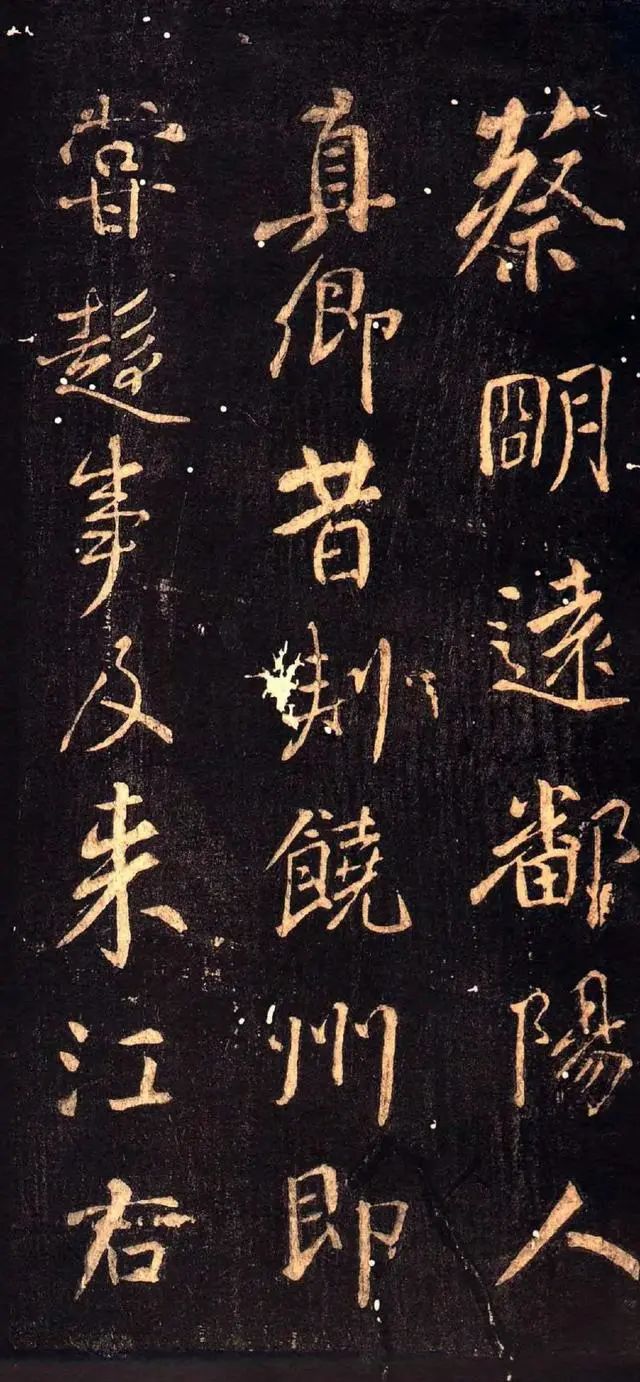 蔡明遠鄱陽人
真卿昔刺饒州即
甞趍事及来江右